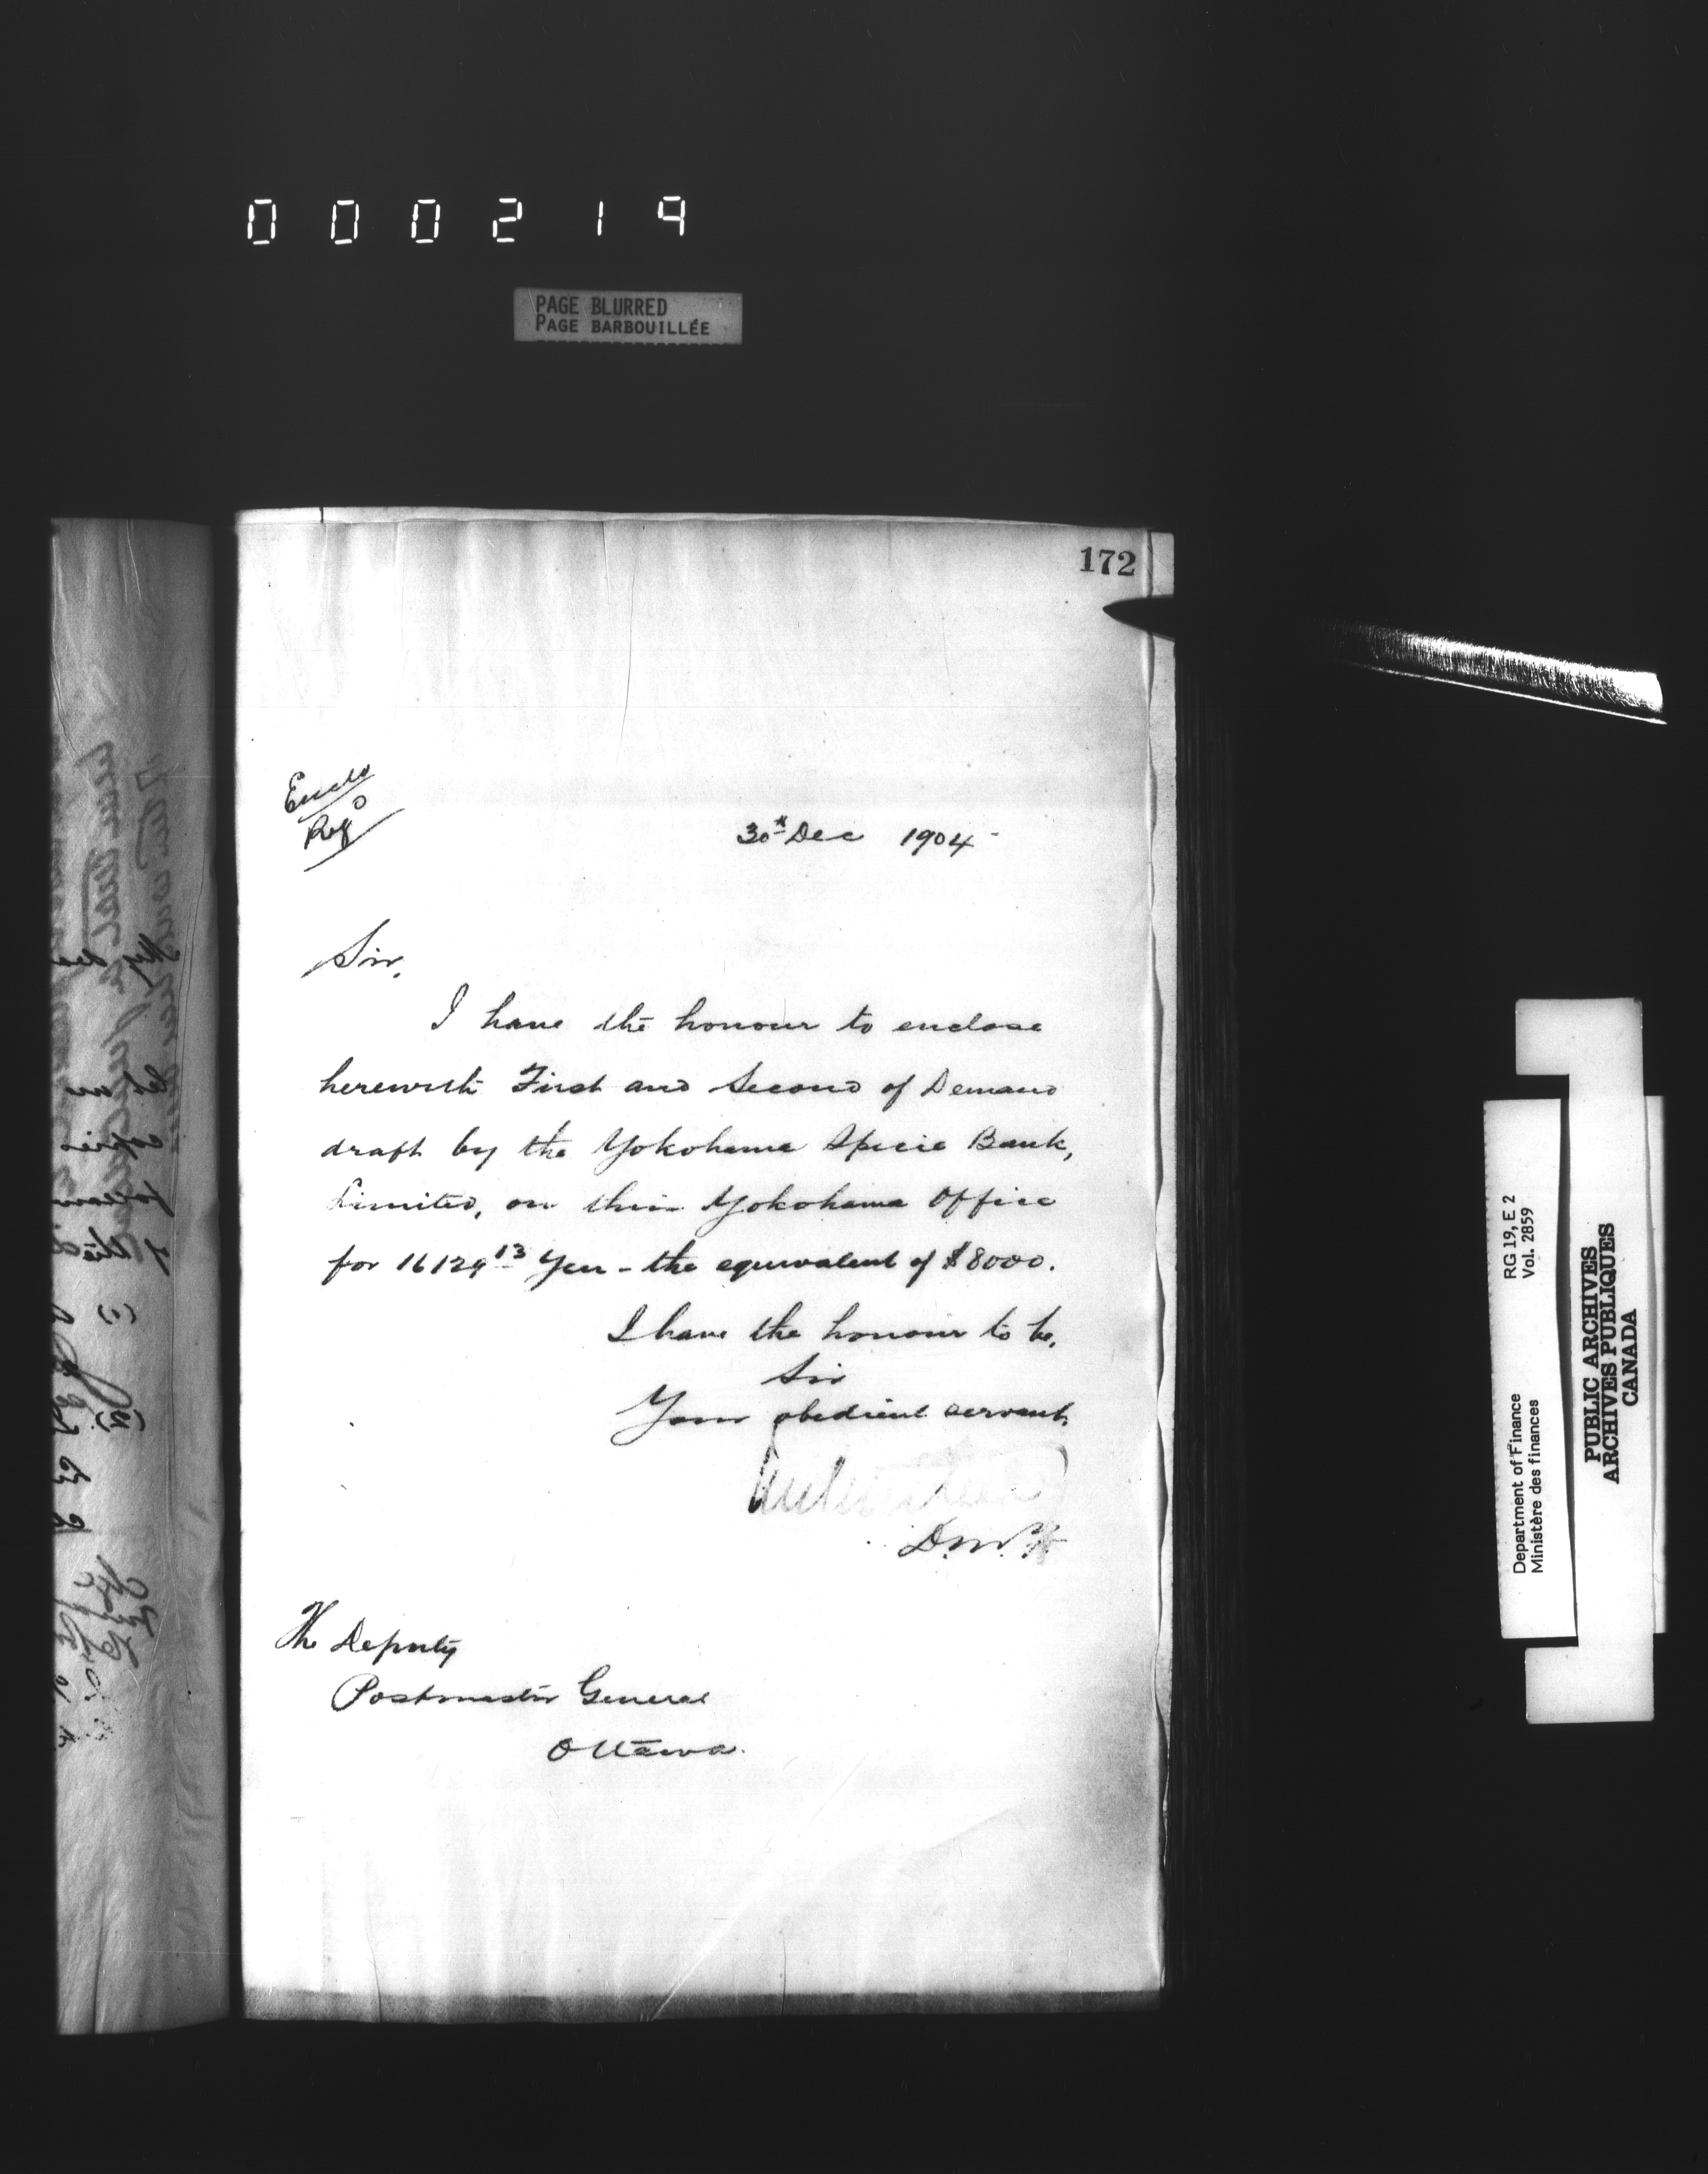 000219
PAGE BLURRED
PAGE BARBOUILLÉE
172
Enclo
Regd
30th Dec 1904
Sir,
I have the honour to enclose
herewith First and Second of Demand
draft by the Yokohama Specie Bank,
Limited, on their Yokohama Office
for 16129 13 Yen - the equivalent of $8000.
I have the honour to be,
Sir
Your obedient servant,
D.M.F.
The Deputy
Postmaster General
Ottawa.
RG 19, E 2
Vol. 2859
Department of Finance
Ministère des finances
PUBLIC ARCHIVES
ARCHIVES PUBLIQUES
CANADA